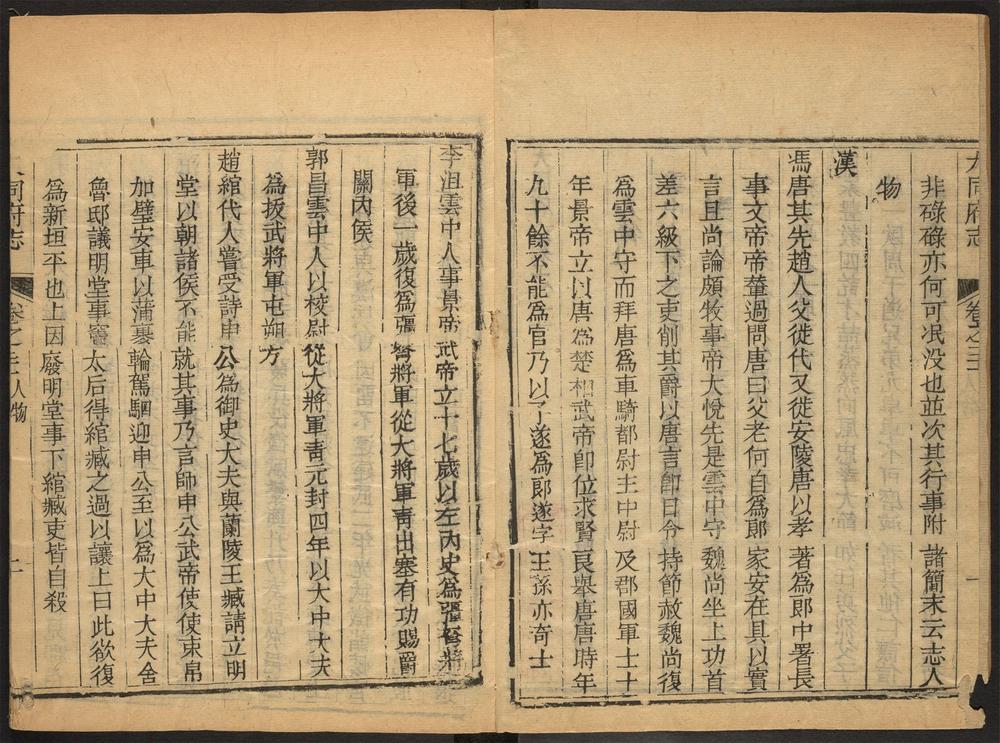 大同府志
卷之三十
非碌碌亦何可泯没也並次其行事附諸簡末云志人
物
漢
馮唐其先趙人父徙代又徙安陵唐以孝著為郎中署長
事文帝帝輦過問唐曰父老何自為郎家安在具以實
言且尚論頗牧事帝大悅先是雲中守魏尚坐上功首
差六級下之吏削其爵以唐言即日令持節赦魏尚復
為雲中守而拜唐為車騎都尉主中尉及郡國車士十
年景帝立以唐為楚相武帝即位求賢良舉唐唐時年
九十餘不能為官乃以子遂為郎遂字王孫亦奇士
李沮雲中人事景帝武帝立十七歲以左內史為彊弩將
軍後一歲復為彊弩將軍從大將軍青出塞有功賜爵
關內侯
郭昌雲中人以校尉從大將軍青元封四年以大中大夫
為拔武將軍屯朔方
趙綰代人嘗受詩申公為御史大夫與蘭陵王臧請立明
堂以朝諸侯不能就其事乃言師申公武帝使使束帛
加璧安車以蒲裹輪駕駟迎申公至以為大中大夫舍
魯邸議明堂事竇太后得綰臧之過以讓上曰此欲復
為新垣平也上因廢明堂事下綰臧吏皆自殺
同府志
卷之三十人物
二